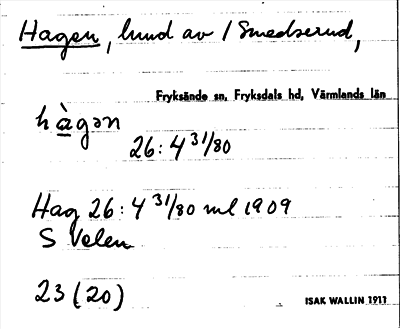 Hagen, lund av / Smedserud,
Fryksände sn, Fryksdals hd, Värmlands län
hàgən
26:4 31/80
Hag 26:4 31/80 ml 1909
S Velen
23 (20)
ISAK WALLIN 1911